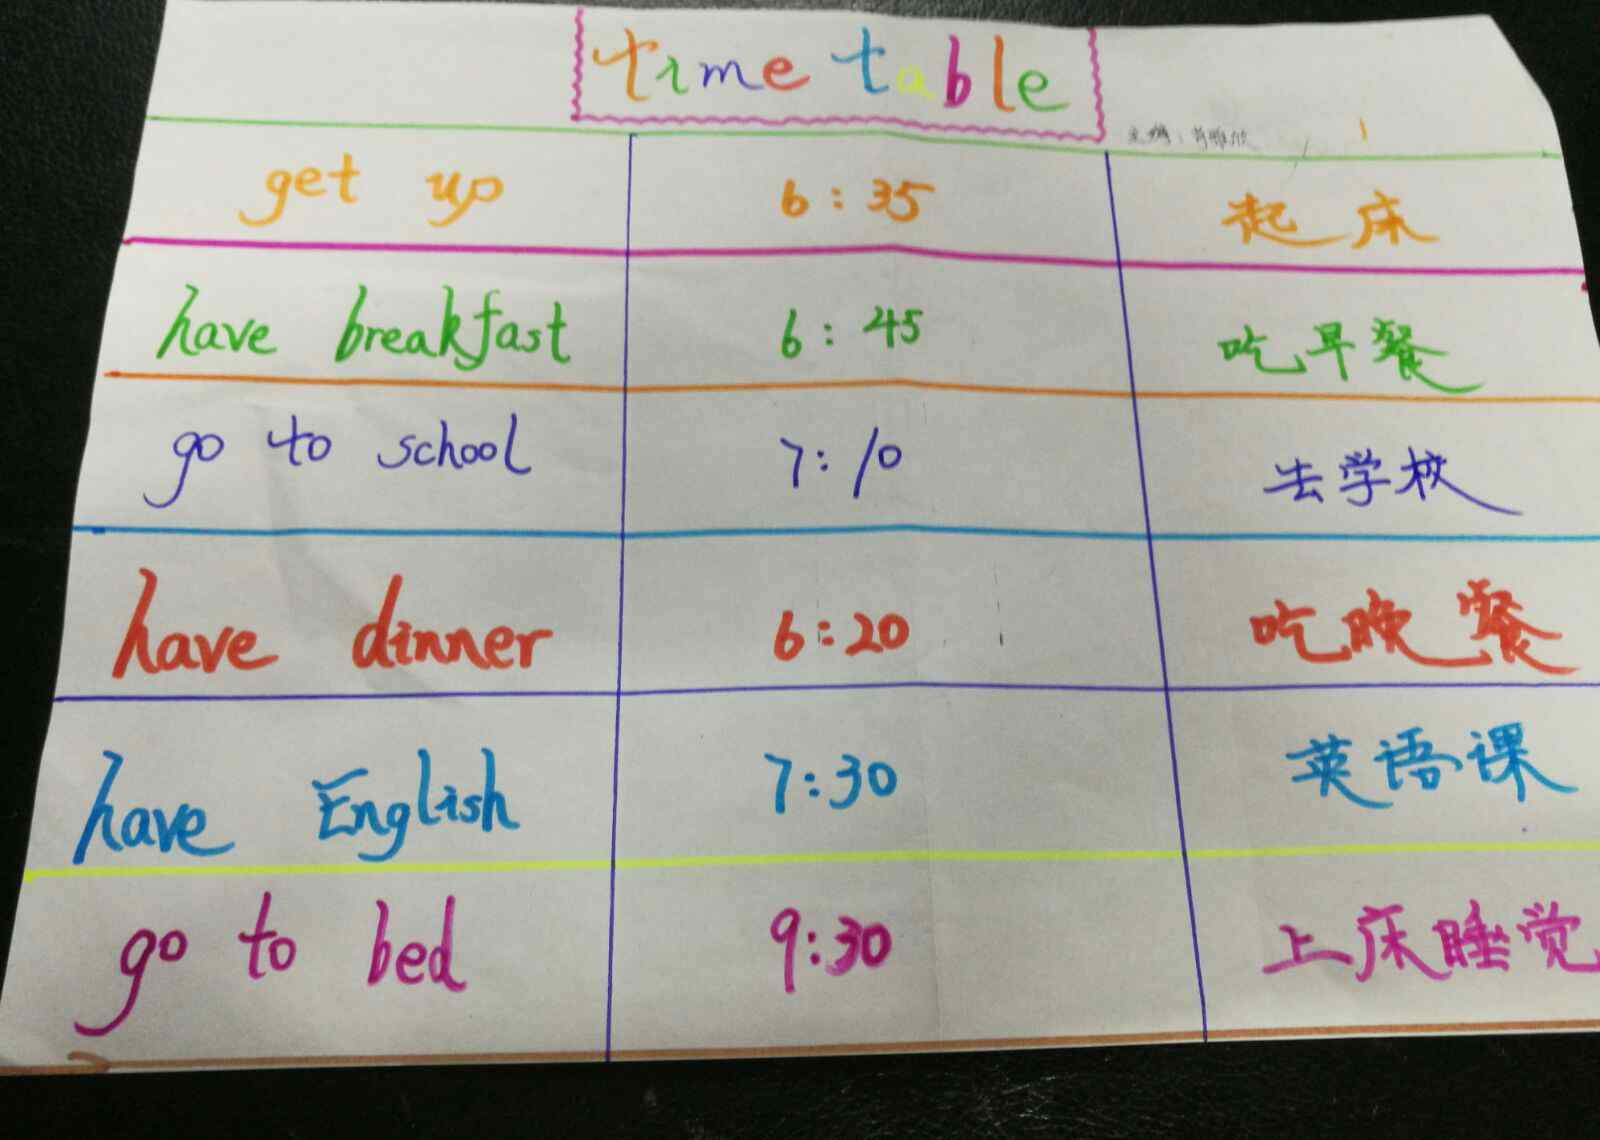 time table
主编：肖雅欣
get up 6:35 起床
have breakfast 6:45 吃早餐
go to school 7:10 去学校
have dinner 6:20 吃晚餐
have English 7:30 英语课
go to bed 9:30 上床睡觉